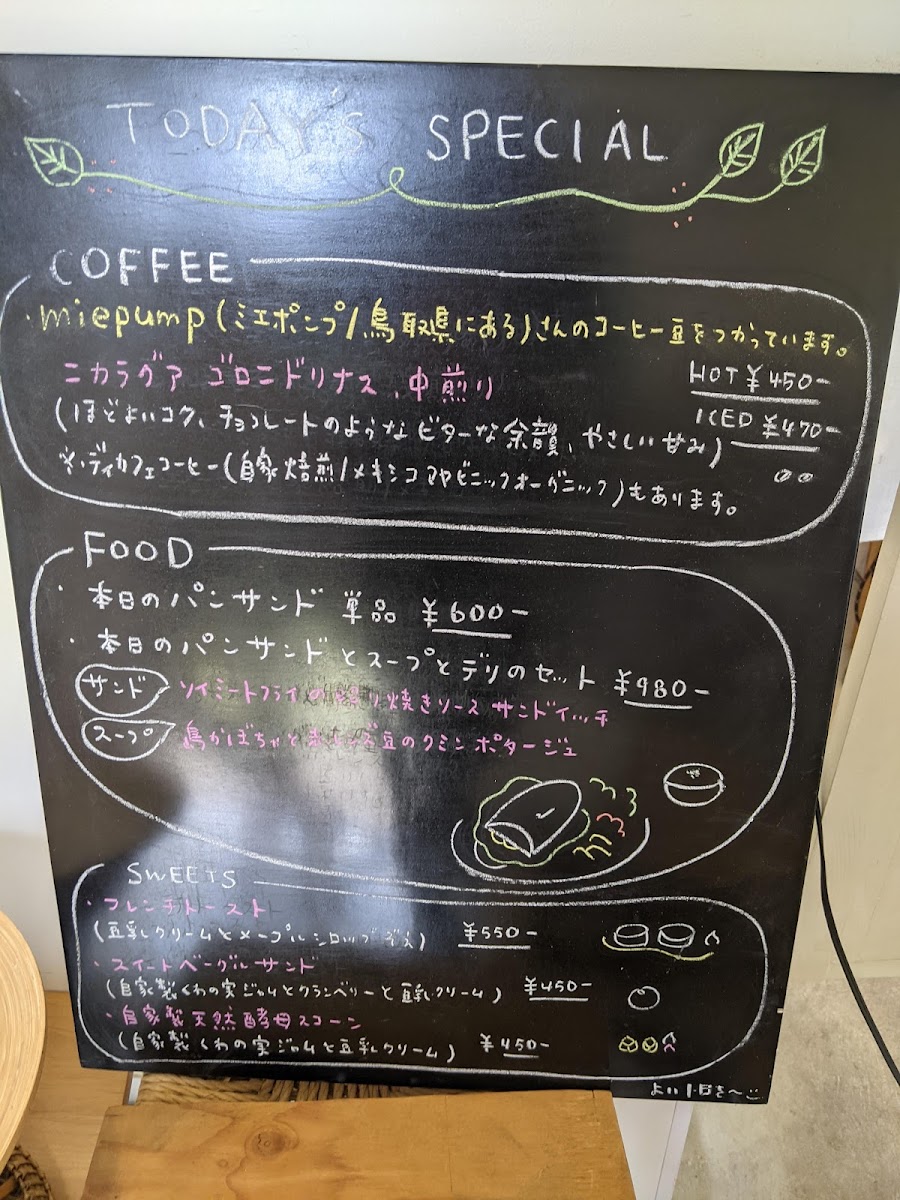 TODAY'S SPECIAL
COFFEE
・miepump(ミエポンプ/鳥取県にある)さんのコーヒー豆をつかっています。
ニカラグア ゴロンドリナス、中煎り
HOT ¥450-
(ほどよいコク、チョコレートのようなビターな余韻、やさしい甘み)
ICED ¥470-
※ディカフェコーヒー(自家焙煎/メキシコマヤビニックオーガニック)もあります。
FOOD
・本日のパンサンド 単品 ¥600-
・本日のパンサンドとスープとデリのセット ¥980-
サンド ソイミートフライの照り焼きソース サンドイッチ
スープ かぼちゃと豆のクミンポタージュ
SWEETS
・フレンチトースト
(豆乳クリームとメープルシロップ ぞえ) ¥550-
・スイートベーグルサンド
(自家製くわの実ジャムとクランベリーと豆乳クリーム) ¥450-
・自家製天然酵母スコーン
(自家製くわの実ジャムと豆乳クリーム) ¥450-
よい1日を〜